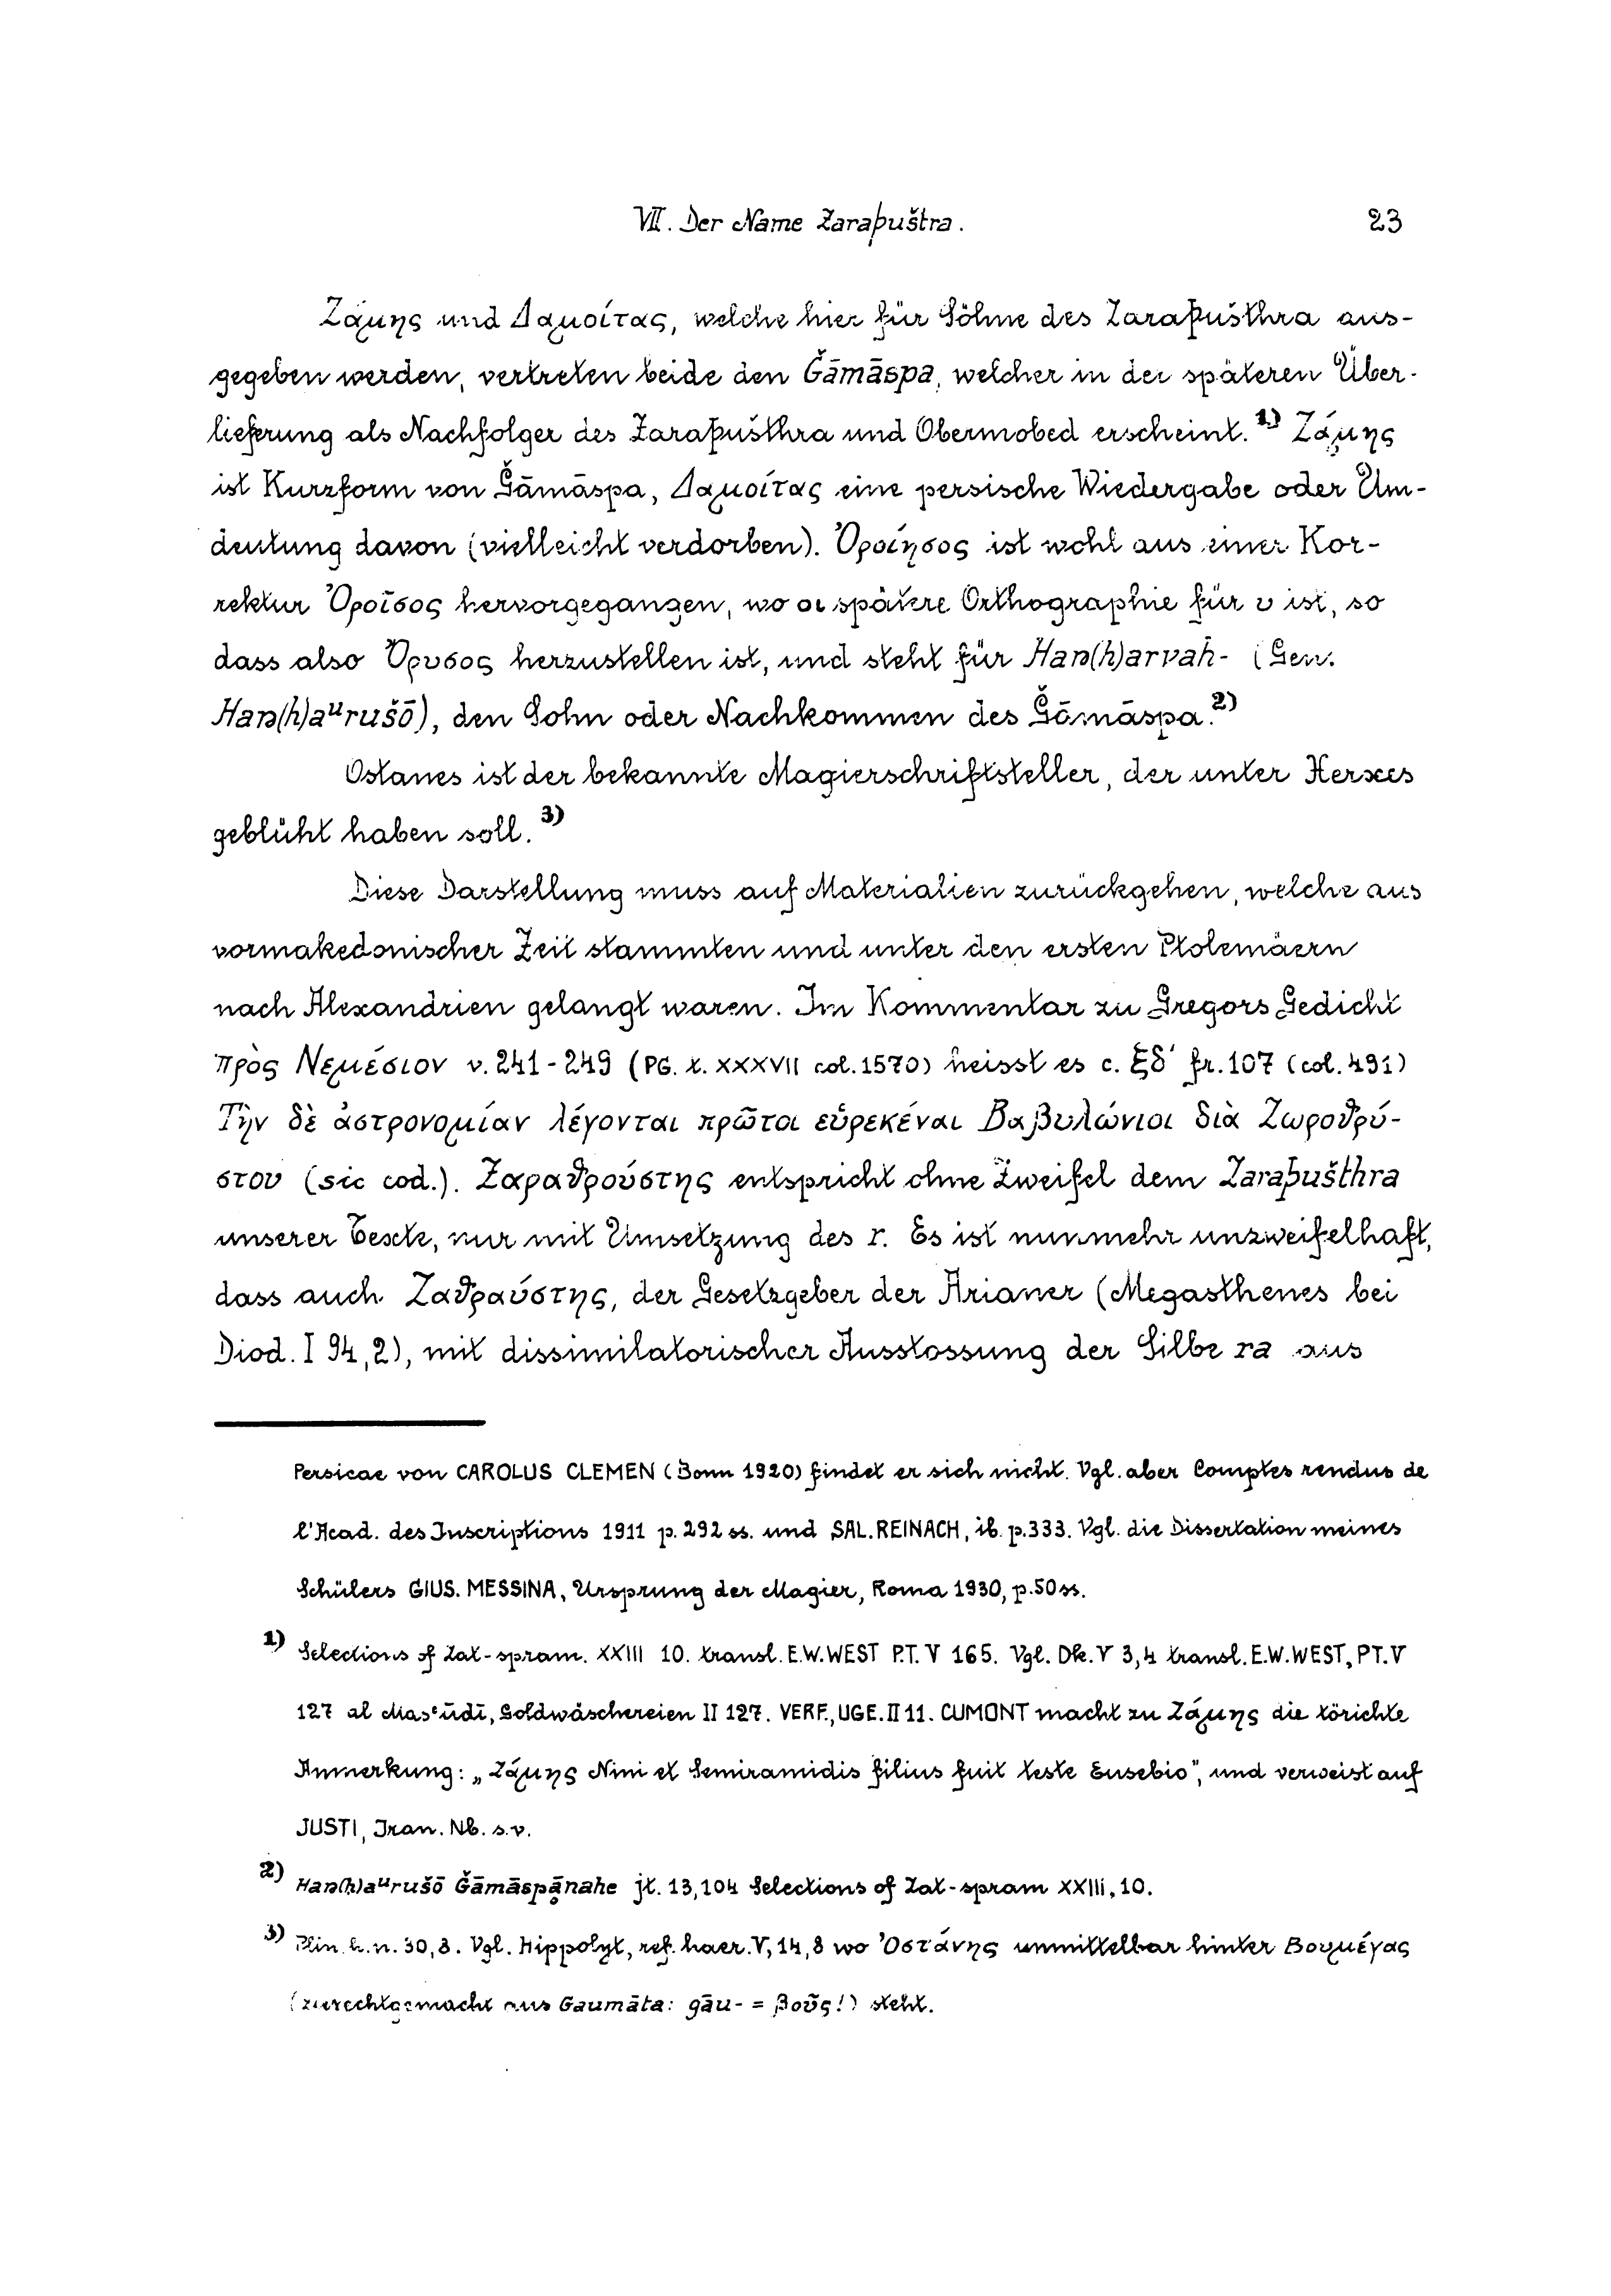 VII. Der Name Zaraþuštra.
23
Ζάμης und Δαμοίτας, welche hier für Söhne des Zaraþušthra aus-
gegeben werden, vertreten beide den Ǧāmāspa, welcher in der späteren Über-
lieferung als Nachfolger des Zaraþušthra und Obermobed erscheint.¹⁾ Ζάμης
ist Kurzform von Ǧāmāspa, Δαμοίτας eine persische Wiedergabe oder Um-
deutung davon (vielleicht verdorben). Ὀροίησος ist wohl aus einer Kor-
rektur Ὀροῖσος hervorgegangen, wo οι spätere Orthographie für υ ist, so
dass also Ὄρυσος herzustellen ist, und steht für Haŋ(h)arvah- (Gen.
Haŋ(h)aᵘrušō), den Sohn oder Nachkommen des Ǧāmāspa.²⁾
Ostanes ist der bekannte Magierschriftsteller, der unter Xerxes
geblüht haben soll.³⁾
Diese Darstellung muss auf Materialien zurückgehen, welche aus
vormakedonischer Zeit stammten und unter den ersten Ptolemäern
nach Alexandrien gelangt waren. Im Kommentar zu Gregors Gedicht
πρὸς Νεμέσιον v. 241-249 (PG. t. XXXVII col. 1570) heisst es c. ξδ' fr. 107 (col. 491)
Τὴν δὲ ἀστρονομίαν λέγονται πρῶτοι εὑρεκέναι Βαβυλώνιοι διὰ Ζωροθρύ-
στου (sic cod.). Ζαραθρούστης entspricht ohne Zweifel dem Zaraþušthra
unserer Texte, nur mit Umsetzung des r. Es ist nunmehr unzweifelhaft,
dass auch Ζαθραύστης, der Gesetzgeber der Arianer (Megasthenes bei
Diod. I 94,2), mit dissimilatorischer Ausstossung der Silbe ra aus
Persicae von CAROLUS CLEMEN (Bonn 1920) findet er sich nicht. Vgl. aber Comptes rendus de
l'Acad. des Inscriptions 1911 p. 292 ss. und SAL. REINACH, ib. p. 333. Vgl. die Dissertation meines
Schülers GIUS. MESSINA, Ursprung der Magier, Roma 1930, p. 50 ss.
1) Selections of Zat-spram. XXIII 10. transl. E.W. WEST P.T. V 165. Vgl. Dk. V 3,4 transl. E.W. WEST, PT. V
127 al Masʿūdī, Goldwäschereien II 127. VERF., UGE. II 11. CUMONT macht zu Ζάμης die törichte
Anmerkung: „Ζάμης Nini et Semiramidis filius fuit teste Eusebio", und verweist auf
JUSTI, Iran. Nb. s.v.
2) Haŋ(h)aᵘrušō Ǧāmāspą̄nahe jt. 13,104 Selections of Zat-spram XXIII, 10.
3) Plin. h.n. 30,8. Vgl. Hippolyt, ref. haer. V, 14,8 wo Ὀστάνης unmittelbar hinter Βουμέγας
(zurechtgemacht aus Gaumāta: gāu- = βοῦς!) steht.